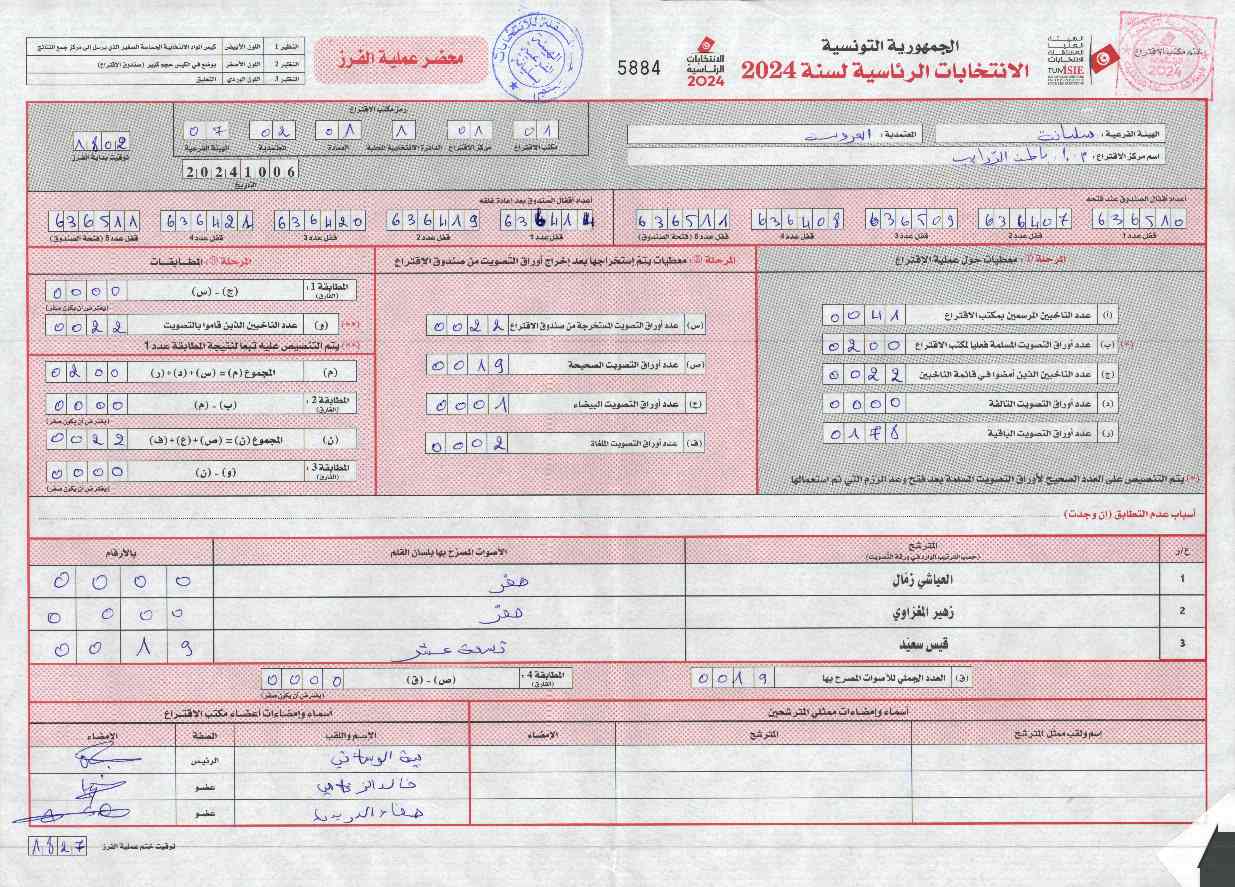 الجمهورية التونسية
الانتخابات الرئاسية لسنة 2024
الهيئة العليا المستقلة للانتخابات
TUNISIE
الانتخابات الرئاسية 2024
5884
محضر عملية الفرز
النظير 1 اللون الأبيض
النظير 2 اللون الأصفر يوضع في الكيس حجم كبير (صندوق الاقتراع)
النظير 3 اللون الوردي التعليق
الهيئة الفرعية: سليانة
المعتمدية: العروسة
اسم مركز الاقتراع:
رمز مكتب الاقتراع
01 01 8 08 02 07
مكتب الاقتراع مركز الاقتراع الدائرة الانتخابية المحلية العمادة المعتمدية الهيئة الفرعية
20241006
التاريخ
1802
توقيت بداية الفرز
أعداد أقفال الصندوق عند فتحه
636510 636407 636509 636408 636511
قفل عدد 1 قفل عدد 2 قفل عدد 3 قفل عدد 4 قفل عدد 5 (فتحة الصندوق)
أعداد أقفال الصندوق بعد إعادة غلقه
636419 636420 636421 636511
قفل عدد 1 قفل عدد 2 قفل عدد 3 قفل عدد 4 قفل عدد 5 (فتحة الصندوق)
المرحلة ①: معطيات حول عملية الاقتراع
(أ) عدد الناخبين المرسمين بمكتب الاقتراع 0041
(*) (ب) عدد أوراق التصويت المسلمة فعليا لمكتب الاقتراع 0200
(ج) عدد الناخبين الذين أمضوا في قائمة الناخبين 0022
(د) عدد أوراق التصويت التالفة 0000
(ر) عدد أوراق التصويت الباقية 0178
(*) يتم التنصيص على العدد الصحيح لأوراق التصويت المسلمة بعد فتح وعد الرزم التي تم استعمالها
المرحلة ②: معطيات يتم إستخراجها بعد إخراج أوراق التصويت من صندوق الاقتراع
(س) عدد أوراق التصويت المستخرجة من صندوق الاقتراع 0022
(ص) عدد أوراق التصويت الصحيحة 0019
(ع) عدد أوراق التصويت البيضاء 0001
(ف) عدد أوراق التصويت الملغاة 0002
المرحلة ③: المطابقات
المطابقة 1: (الفارق) (ج) - (س) 0000
(يفترض أن يكون صفر)
(**) (و) عدد الناخبين الذين قاموا بالتصويت 0022
(**) يتم التنصيص عليه تبعا لنتيجة المطابقة عدد 1
(م) المجموع (م) = (س) + (د) + (ر) 0200
المطابقة 2: (الفارق) (ب) - (م) 0000
(يفترض أن يكون صفر)
(ن) المجموع (ن) = (ص) + (ع) + (ف) 0022
المطابقة 3: (الفارق) (و) - (ن) 0000
(يفترض أن يكون صفر)
أسباب عدم التطابق (إن وجدت)
ع/ر المترشح (حسب الترتيب الوارد في ورقة التصويت) الأصوات المصرح بها بلسان القلم بالأرقام
1 العياشي زمال صفر 0000
2 زهير المغزاوي صفر 0000
3 قيس سعيد تسعة عشر 0019
(ق) العدد الجملي للأصوات المصرح بها 0019
المطابقة 4: (الفارق) (ص) - (ق) 0000
(يفترض أن يكون صفر)
أسماء وإمضاءات ممثلي المترشحين
اسم ولقب ممثل المترشح المترشح الإمضاء
أسماء وإمضاءات أعضاء مكتب الاقتراع
الاسم واللقب الصفة الإمضاء
الرئيس
خالد عضو
صفاء عضو
توقيت ختم عملية الفرز 1827